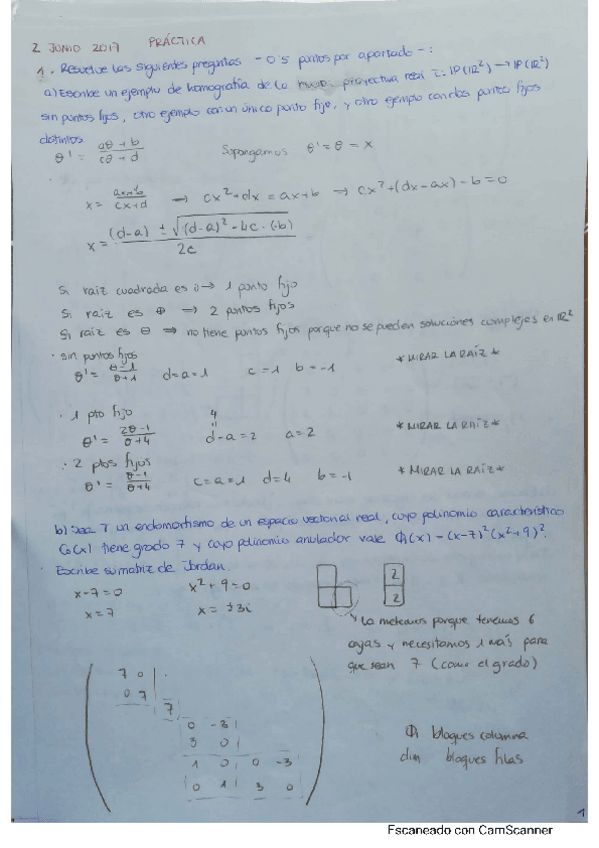 2 JUNIO 2017 PRÁCTICA
1. Resuelve las siguientes preguntas - 0'5 puntos por apartado - :
a) Escribe un ejemplo de homografía de la recta proyectiva real τ: IP(IR²) → IP(IR²)
sin puntos fijos, otro ejemplo con un único punto fijo, y otro ejemplo con dos puntos fijos
distintos.
θ' = aθ + b / cθ + d Supongamos θ' = θ = x
x = ax+b / cx+d → cx² + dx = ax + b → cx² + (dx - ax) - b = 0
x = (d-a) ± √(d-a)² - 4c · (-b) / 2c
Si raiz cuadrada es 0 → 1 punto fijo
Si raiz es ⊕ → 2 puntos fijos
Si raiz es ⊖ ⇒ no tiene puntos fijos porque no se pueden soluciones complejas en IR²
· sin puntos fijos
θ' = θ-1 / θ+1 d=a=1 c=1 b=-1 * MIRAR LA RAÍZ *
· 1 pto fijo
θ' = 2θ-1 / θ+4 4 = d-a=2 a=2 * MIRAR LA RAÍZ *
· 2 ptos fijos
θ' = θ-1 / θ+4 c=a=1 d=4 b=-1 * MIRAR LA RAÍZ *
b) Sea T un endomorfismo de un espacio vectorial real, cuyo polinomio característico
C(x) tiene grado 7 y cuyo polinomio anulador vale ϕ(x) = (x-7)²(x²+9)².
Escribe su matriz de Jordan.
x-7=0 x²+9=0
x=7 x = ±3i
2
2
Lo metemos porque tenemos 6
cajas y necesitamos 1 más para
que sean 7 (como el grado)
7 0
0 7
7
0 -3
3 0
1 0 0 -3
0 1 3 0
bloques columna
dim bloques filas
1
Escaneado con CamScanner